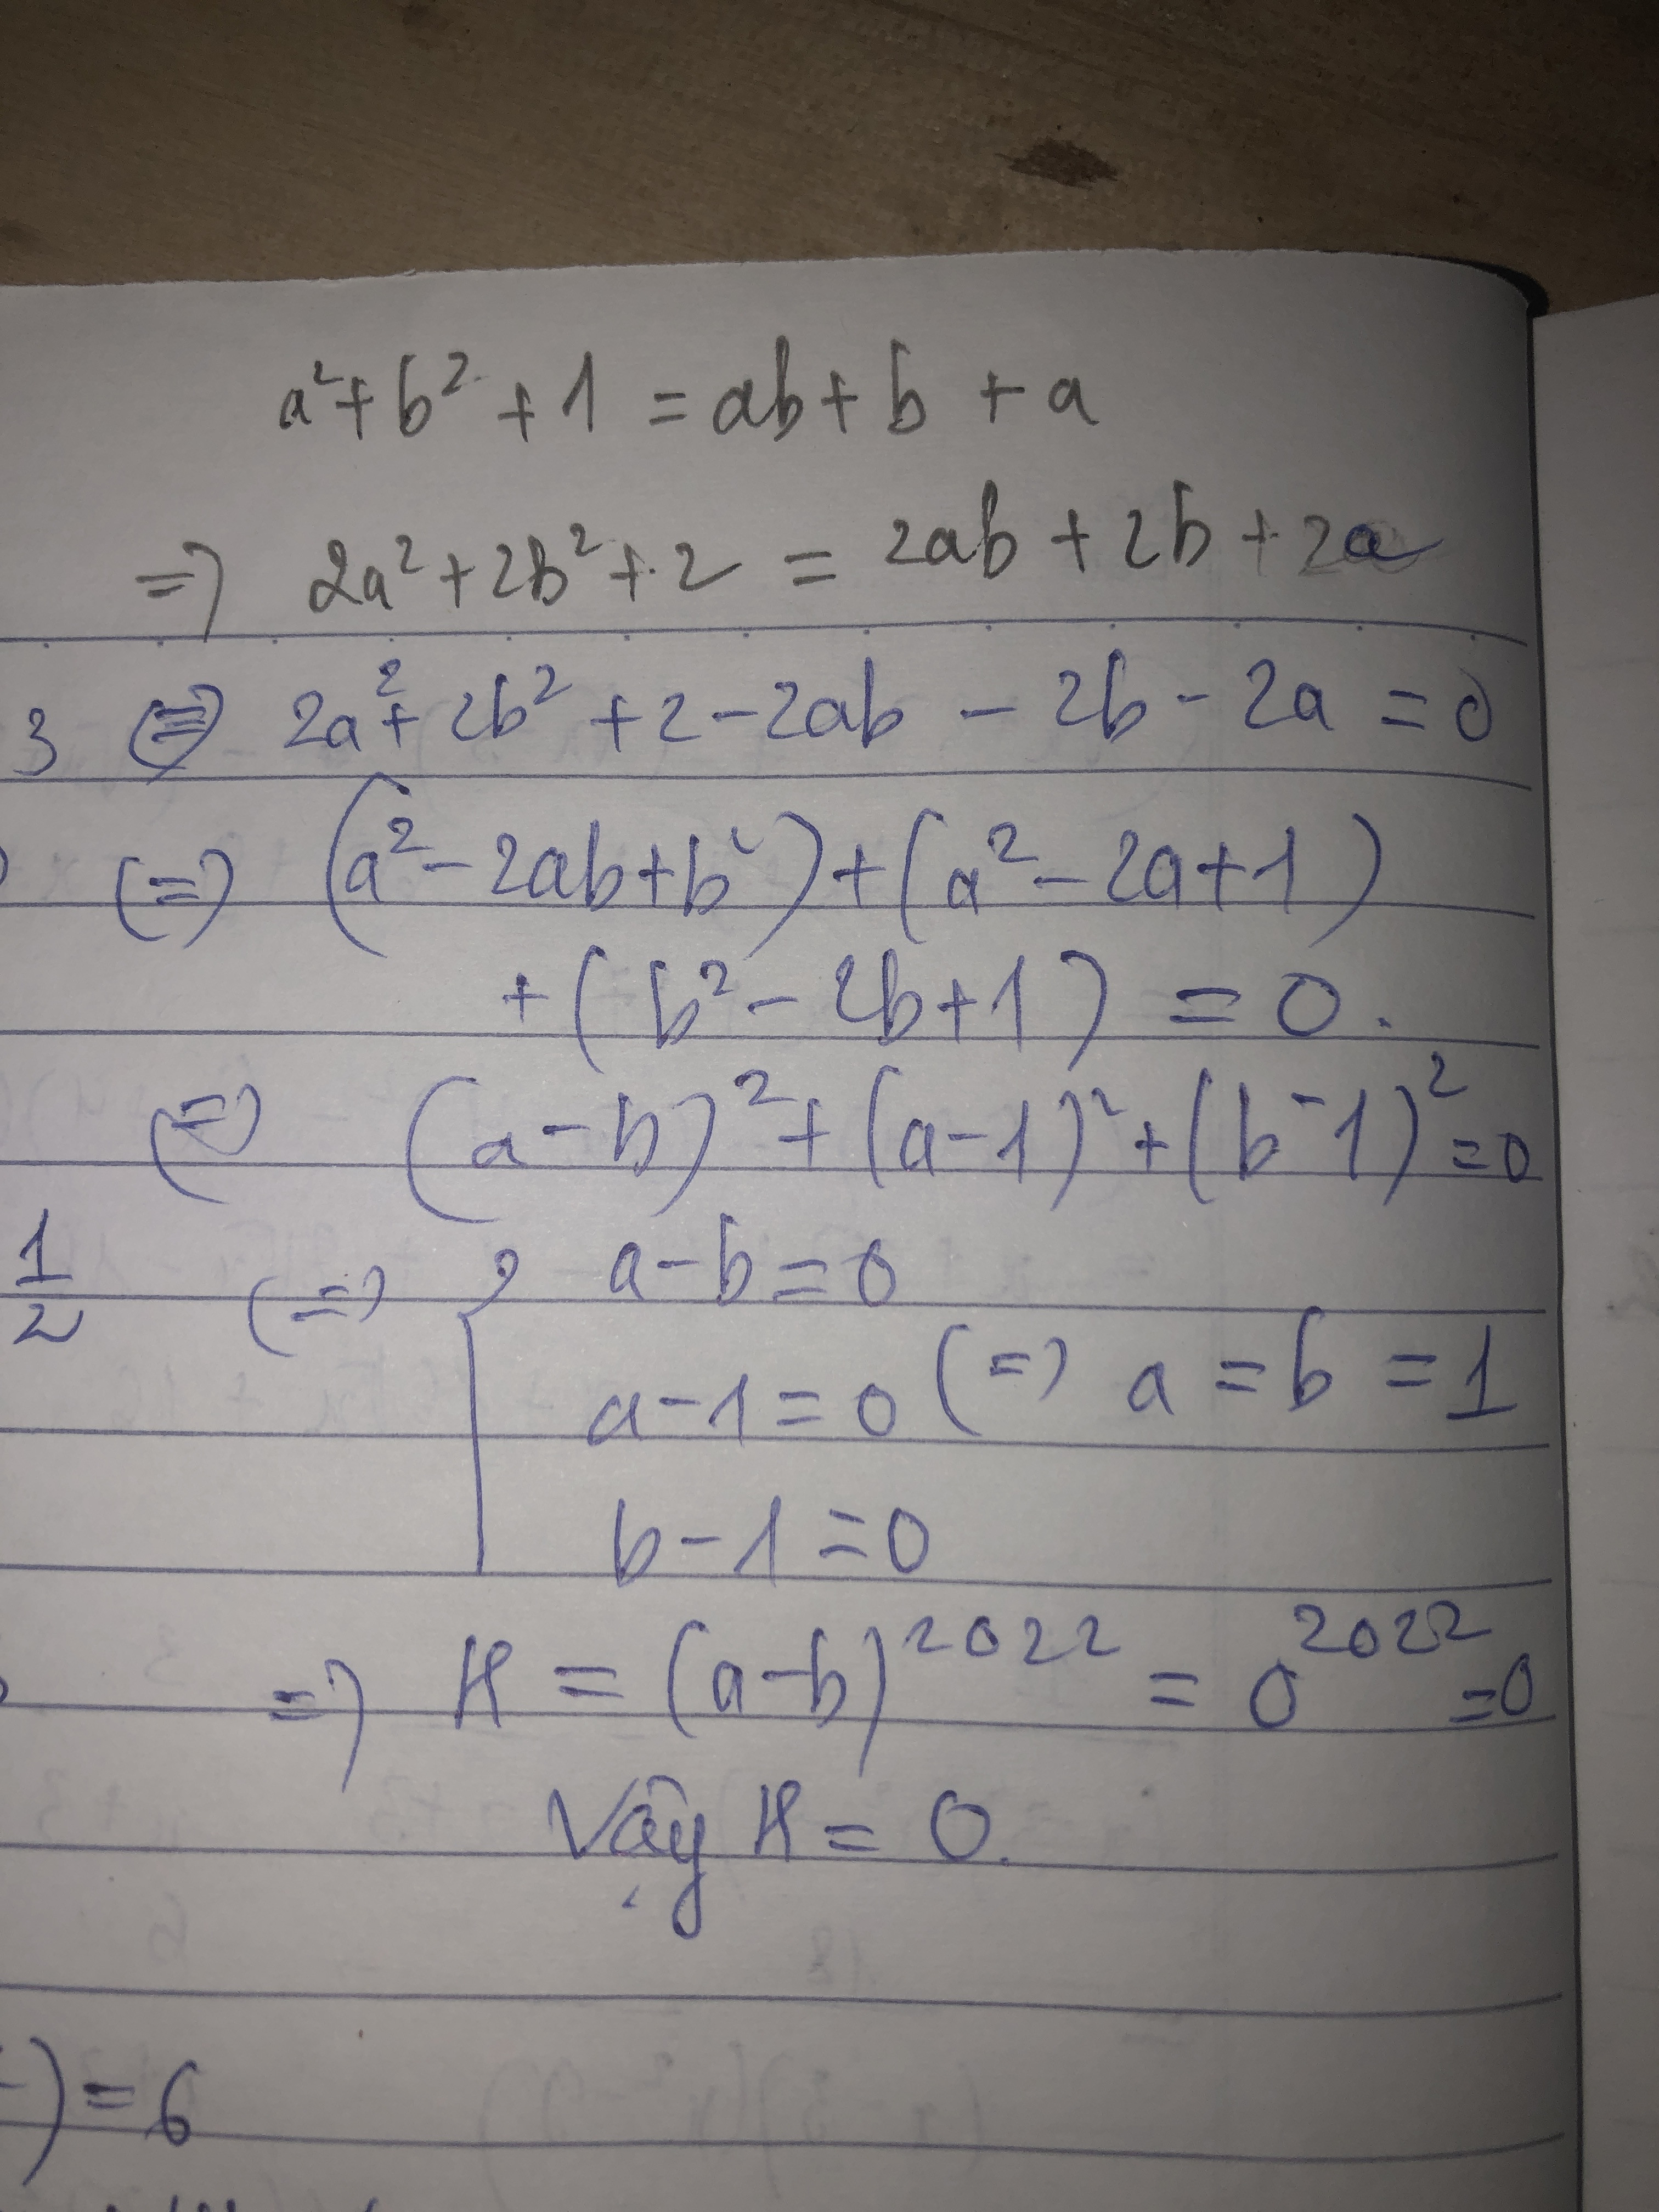 a² + b² + 1 = ab + b + a
=> 2a² + 2b² + 2 = 2ab + 2b + 2a
3 (=) 2a² + 2b² + 2 - 2ab - 2b - 2a = 0
(=) (a² - 2ab + b²) + (a² - 2a + 1)
+ (b² - 2b + 1) = 0.
(=) (a - b)² + (a - 1)² + (b - 1)² = 0
1/2 (=) { a - b = 0
a - 1 = 0 (=) a = b = 1
b - 1 = 0
=> H = (a - b)²⁰²² = 0²⁰²² = 0
Vậy H = 0.
) = 6